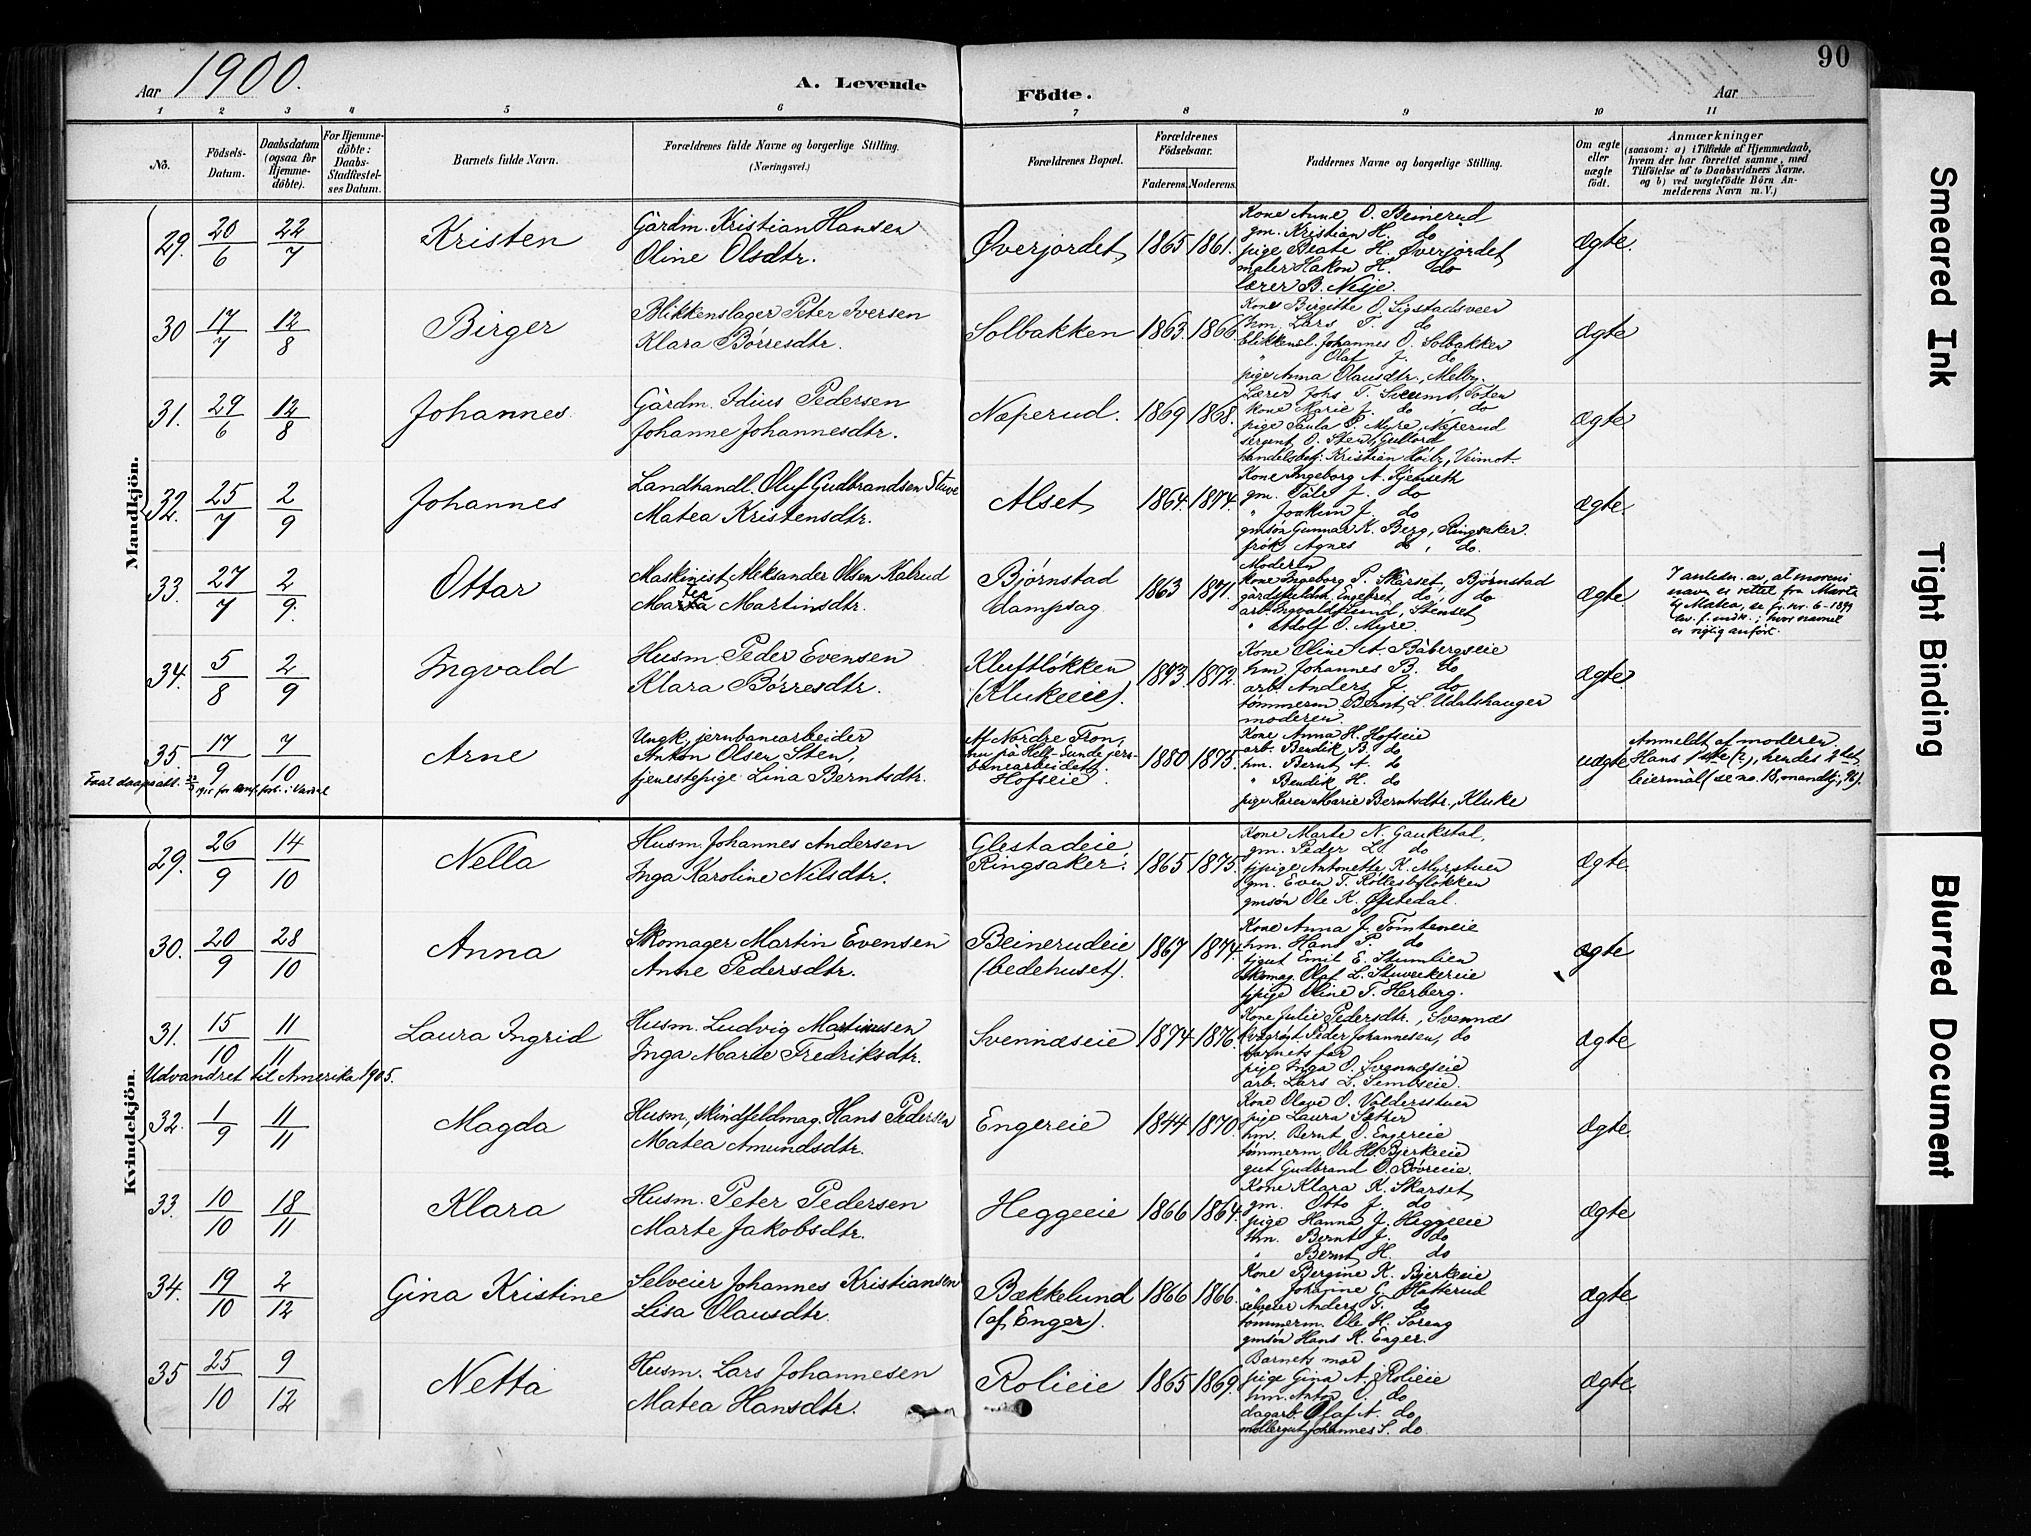 90
Aar 1900. A. Levende Födte. Aar
1 2 3 4 5 6 7 8 9 10 11
No. Födsels-Datum. Daabsdatum (ogsaa for Hjemmedöbte). For Hjemmedöbte: Daabs-Stadfestelses Datum. Barnets fulde Navn. Forældrenes fulde Navne og borgerlige Stilling. (Næringsvei.) Forældrenes Bopæl. Forældrenes Födselsaar. Faderens. Moderens. Faddernes Navne og borgerlige Stilling. Om ægte eller uægte födt. Anmærkninger (saasom: a) i Tilfælde af Hjemmedaab, hvem der har forrettet samme, med Tilföielse af to Daabsvidners Navne, og b) ved uægtefödte Börn Anmelderens Navn m. V.)
Mandkjön.
29. 20/6 22/7 Kristen Gårdm. Kristian Hansen Oline Olsdtr. Øverjordet 1865 1861. ægte.
Kone Anne O. Beinerud
gm. Kristian H. do
pige Beate H. Øverjordet
maler Hakon H. do
lærer B. Nesje.
30 17/7 12/8 Birger Blikkenslager Peter Iversen Klara Børresdtr. Solbakken 1863. 1866. ægte
Kone Birgithe O. Sigstadsveen
hm. Lars T. do
blikkensl. Johannes O. Solbakken
" Olaf J. do
pige Anna Olausdtr., Melby.
31. 29/6 12/8 Johannes Gårdm. Idius Pedersen Johanne Johannesdtr. Næperud. 1869 1868. ægte
Lærer Johs T. Sveum, Toten
kone Marie J. do, do
pige Paula P. Myre, Næperud
sergent O. Sten,
handelsbetj. Kristian
32. 25/7 2/9 Johannes Landhandl. Oluf Gudbrandsen Stuve Matea Kristensdtr. Alset 1864. 1874. ægte.
Kone Ingeborg A. Gjenseth
gm. J. do
" Joakim J. do
gmsøn Gunnar K. Berg, Ringsaker.
frøk Agnes do, do.
33. 27/7 2/9. Ottar Maskinist Aleksander Olsen Kalrud Martea Martinsdtr. Bjørnstad dampsag. 1863 1871. ægte.
Moderen
kone Ingeborg P. Skarset, Bjørnstad
Engebret do, do
arb. Ingvald Lund, Stenset
" Adolf O. Myre.
I anledn. av, at morens
navn er rettet fra Marte
til Matea, se fg. nr. 6-1899
lev. f. mdk.; hvor navnet
er rigtig anført.
34. 5/8 2/9 Ingvald Husm. Peder Evensen Klara Børresdtr. Kluftløkken (Klukeeie). 1843. 1872. ægte.
Kone Oline A. Båbergseie
hm. Johannes B. do
arb. Anders J. do
tømmerm. Bernt L. Udalshauger
moderen.
35. 17/9 7/10 Arne Ungk. jernbanearbeider Anton Olsen Sten, tjenestepige Lina Berntsdtr. Af Nordre Fron, nu på Hell-Sunde jernbanearbeidet. Hofseie. 1880 1875. uægte
Kone Anna H. Hofseie
arb. Bendik B. do
hm. Bernt A. do
" Bendik H. do
pige Karen Marie Berntsdtr., Kluke
Anmeldt af moderen
Hans 1ste (?), hendes 2det
leiermål (se no. 18, mandkj., 96).
Kvindekjön.
29. 26/9 14/10 Nella Husm. Johannes Andersen Inga Karoline Nilsdtr. Glestadeie, Ringsaker. 1865 1875. ægte
Kone Marte N. Gaukstal,
gm. Peder L. do
tjpige Antonette K. Myrstuen
gm. Even T.
gmsøn Ole K. Øfstedal.
30. 20/9 28/10 Anna Skomager Martin Evensen Anne Pedersdtr. Beinerudeie (bedehuset). 1867 1874. ægte
Kone Anna J. Tømteneie
hm. Hans P. do
tjgut Emil E. Stumlien
skomag. Olaf L.
tjpige Oline T. Herberg.
31. 15/10 11/11 Laura Ingrid Husm. Ludvig Martinusen Inga Marie Fredriksdtr. Svennæseie 1874 1876. ægte
Udvandret til Amerika 1905.
Kone Julie Pedersdtr., Svennæs
Peder Johannesen, do
barnets far
pige Inga O. Svennæseie
arb. Lars L.
32. 1/9 11/11 Magda Husm., skindfeldmag. Hans Pedersen Matea Amundsdtr. Engereie 1844 1870. ægte.
Kone Olave O. Voldersstuen
pige Laura Sæther
hm. Bernt O. Engereie
tømmerm. Ole Hs. Bjerkeeie
gut Gudbrand O. Bøvreeie.
33. 10/10 18/11 Klara Husm. Peter Pedersen Marte Jakobsdtr. Heggeeie 1866 1864. ægte
Kone Klara K. Skarset
gm. Otto J. do
pige Hanna J. Heggeeie
hm. Bernt J. do
" Bernt H. do
34. 19/10 2/12 Gina Kristine Selveier Johannes Kristiansen Lisa Olausdtr. Bækkelund (af Enger). 1866 1866. ægte
Kone Bergine K. Bjerkeeie
" Johanne G. Hatterud
selveier Anders T. do
tømmerm. Ole H. Soreng
gmsøn Hans K. Enger.
35 25/10 9/12 Netta Husm. Lars Johannesen Matea Hansdtr. Rolieie 1865 1869. ægte.
Barnets mor
pige Gina A. Rolieie
hm. Anton O. do
dagarb. Olaf A. do
møllergut Johannes S. do.
Smeared Ink
Tight Binding
Blurred Document